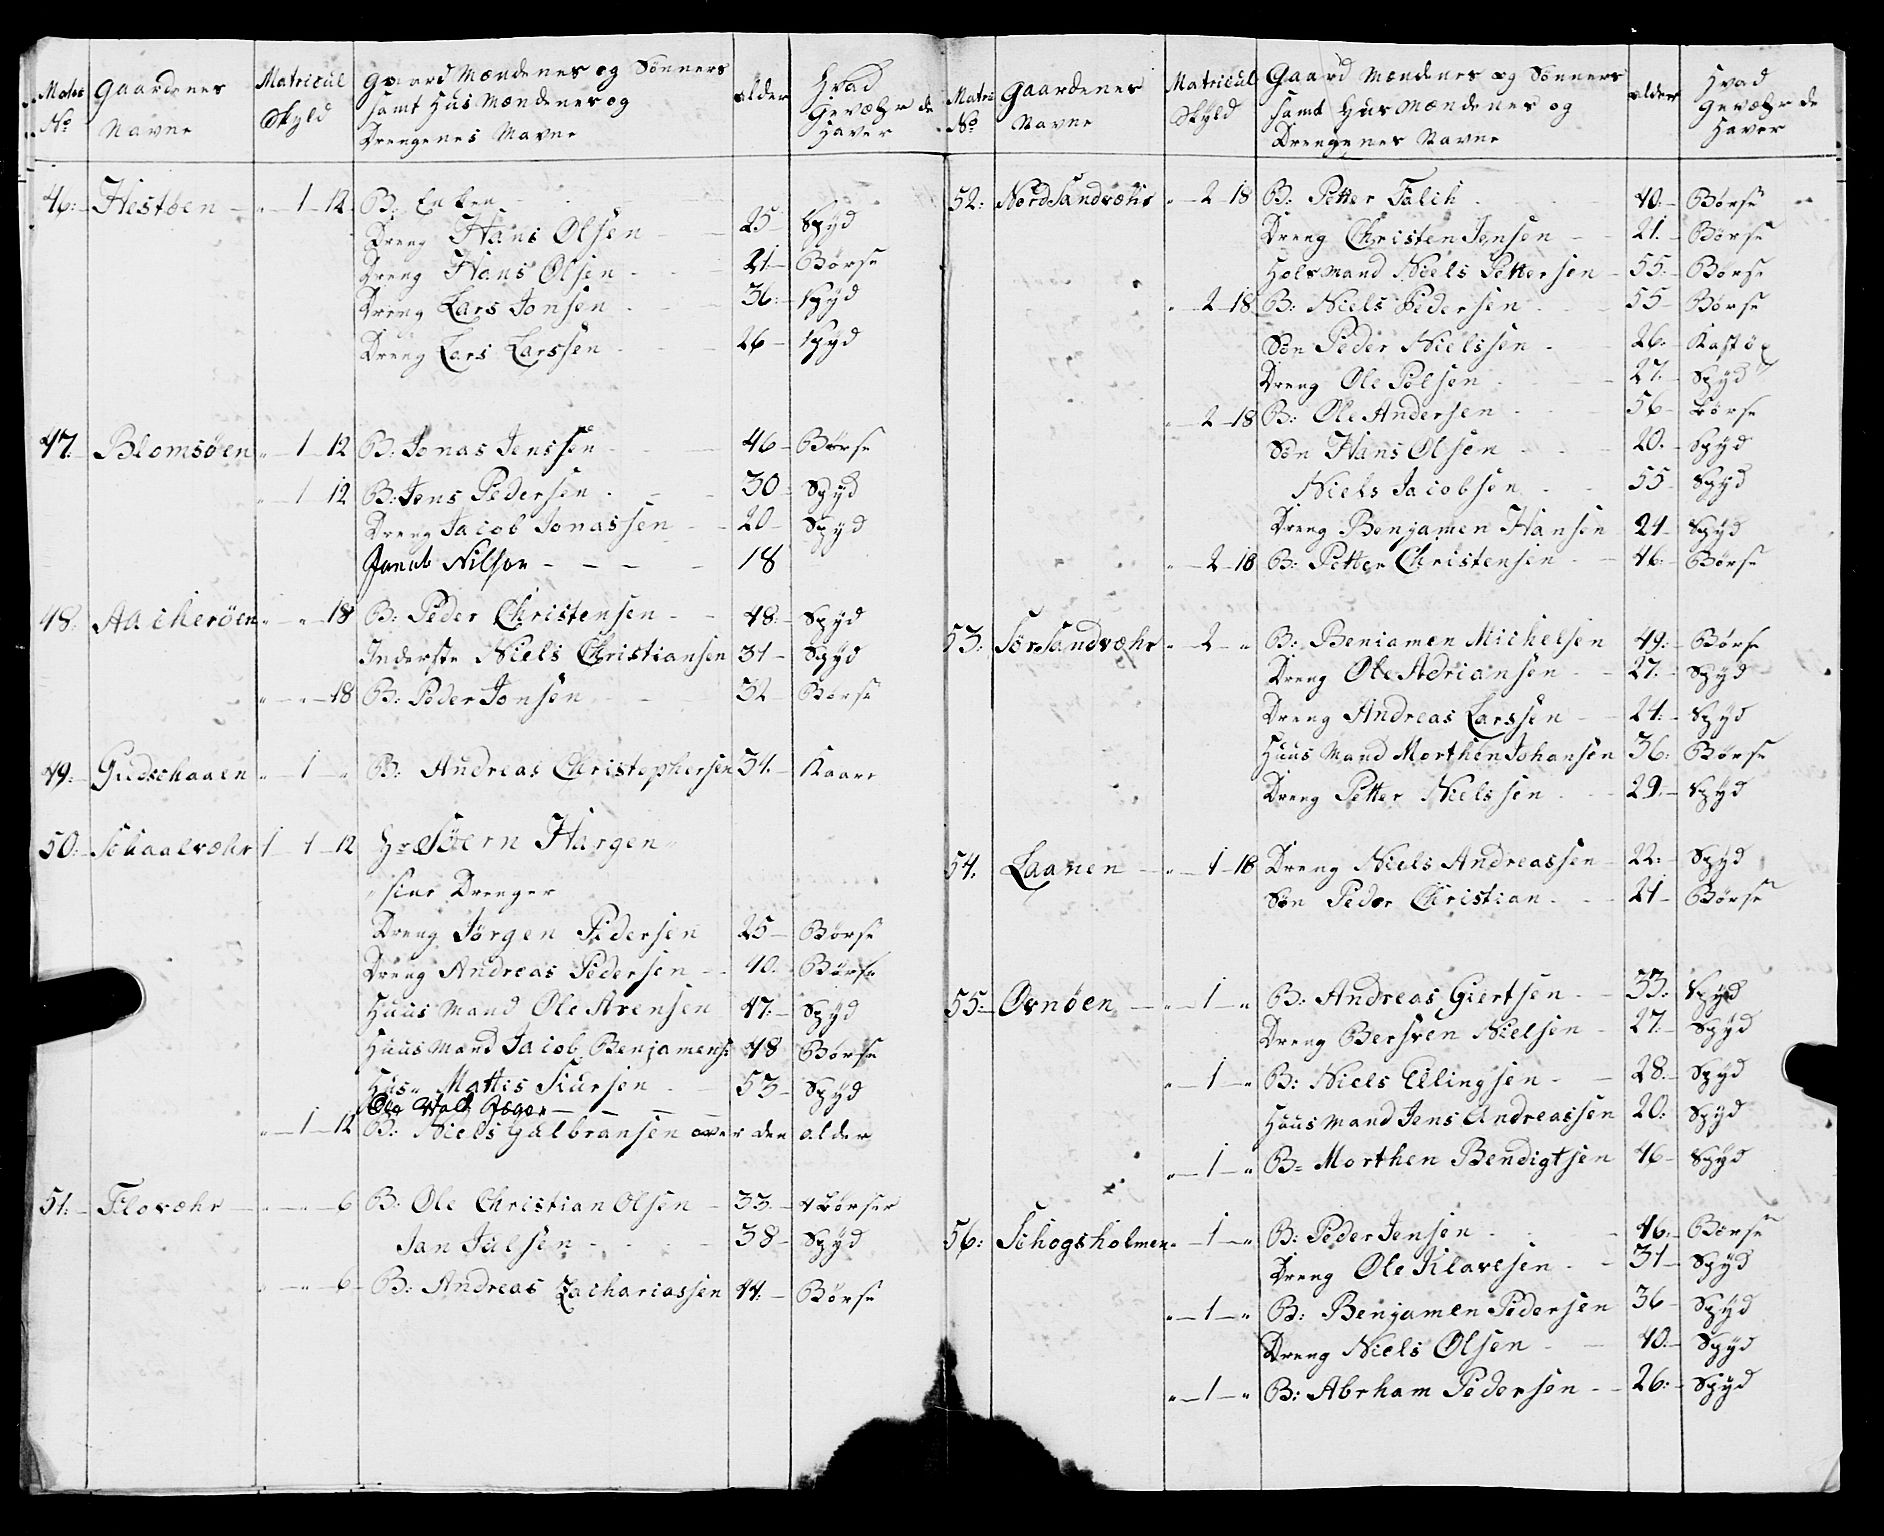 Matri No Gaardenes Navne Matricul Skyld Gaard Mændenes og Sønners samt Hus Mændenes og Drengenes Navne alder Hvad Gevæhr de Haver
46: Hestøen " 1 12 B: Enken
Dreng Hans Olsen 25 Spyd
Dreng Hans Olsen 21 Børse
Dreng Lars Jonsen 36 Spyd
Dreng Lars Larssen 26 Spyd
47. Blomsøen " 1 12 B. Jonas Jenssen 46 Børse
" 1 12 B: Jens Pedersen 30 Spyd
Dreng Jacob Jonassen 20 Spyd
Jacob Nilson 18
48. Aacherøen " " 18 B: Peder Christensen 48 Spyd
Inderste Niels Christiansen 31 Spyd
" " 18 B: Peder Jonsen 32 Børse
49: Gudschaaen " 1 " B: Andreas Christophersen 31. Kaare
50: Schaalvæhr 1 1 12 Hr Søern Hargen
sine Drenger
Dreng Jørgen Pedersen 25 Børse
Dreng Andreas Pedersen 40. Børse
Huus Mand Ole Arensen 47: Spyd
Huus Mand Jacob Benjamens: 48 Børse
Hus" Mattis Siursen 53 Spyd
Ole
" 1 12 B: Niels Gulbransen over den alder
51: Flovæhr " " 6 B: Ole Christian Olsen 33. 4 Børser
Jan Julsen 38 Spyd
" " 6 B: Andreas Zachariassen 44: Børse
Matri No Gaardenes Navne Matricul Skyld Gaard Mændenes og Sønners samt Hus Mændenes og Drengenes Navne alder Hvad Gevæhr de Haver
52: Nord Sandvæhr " 2 18 B: Petter Falch 40. Børse
Dreng Christen Jensen 21. Børse
Holsmand Niels Pettersen 55. Børse
" 2 18 B: Niels Pedersen 55 Børse
Søn Peder Nielssen 26. Kastøx
Dreng Ole Polsen 27. Spyd
" 2 18 B: Ole Andersen 56 Børse
Søn Hans Olsen 20. Spyd
Niels Jacobsen 55 Spyd
Dreng Benjamen Hansen 24 Spyd
" 2 18 B: Petter Christensen 46. Børse
53: Sør Sandvæhr " 2 " B: Beniamen Michelsen 49: Børse
Dreng Ole Adriansen 27. Spyd
Dreng Andreas Larssen 24: Spyd
Huus Mand Morthen Johansen 36: Børse
Dreng Petter Nielssen 29: Spyd
54. Laanen " 1 18 Dreng Niels Andreassen 22: Spyd
Søn Peder Christian 21 Børse
55: Ovnøen " 1 " B: Andreas Giertsen 33: Spyd
Dreng Bersven Nielsen 27. Spyd
" 1 " B: Niels Ellingsen 28. Spyd
Huus Mand Jens Andreassen 20: Spyd
" 1 " B: Morthen Bendigtsen 46 Spyd
56: Schogsholmen " 1 " B: Peder Jensen 46. Børse
Dreng Ole Klavesen 31 Spyd
" 1 " B: Benjamen Pedersen 36 Spyd
Dreng Niels Olsen 40. Spyd
" 1 " B: Abrham Pedersen 26: Spyd